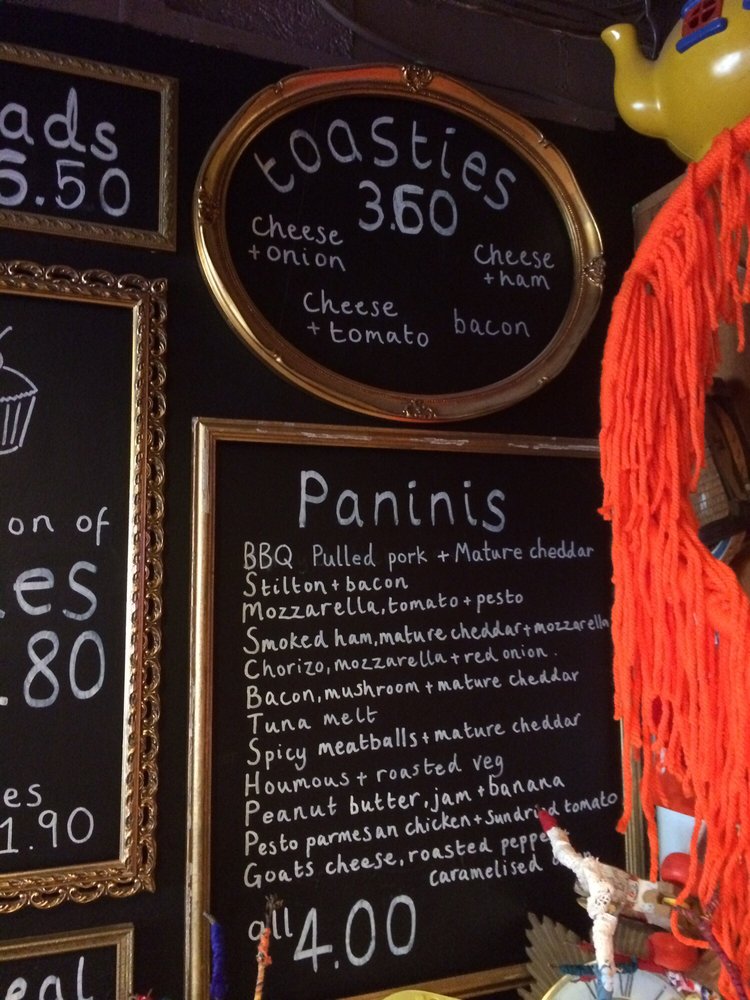 ads
5.50
toasties
3.60
Cheese
+ onion
Cheese
+ ham
Cheese
+ tomato
bacon
on of
es
.80
es
1.90
eal
Paninis
BBQ Pulled pork + Mature cheddar
Stilton + bacon
Mozzarella, tomato + pesto
Smoked ham, mature cheddar + mozzarella
Chorizo, mozzarella + red onion.
Bacon, mushroom + mature cheddar
Tuna melt
Spicy meatballs + mature cheddar
Houmous + roasted veg
Peanut butter, jam + banana
Pesto parmesan chicken + sundried tomato
Goats cheese, roasted peppe
caramelised
all 4.00